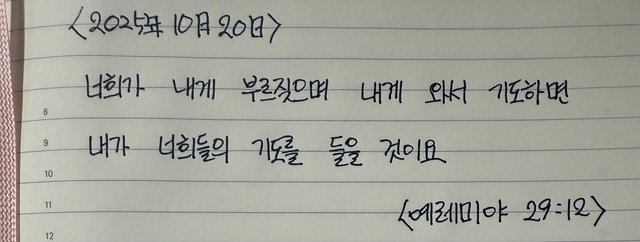 <2025年 10月 20日>
너희가 내게 부르짖으며 내게 와서 기도하면
8
내가 너희들의 기도를 들을 것이요
9
10
<예레미야 29:12>
11
12